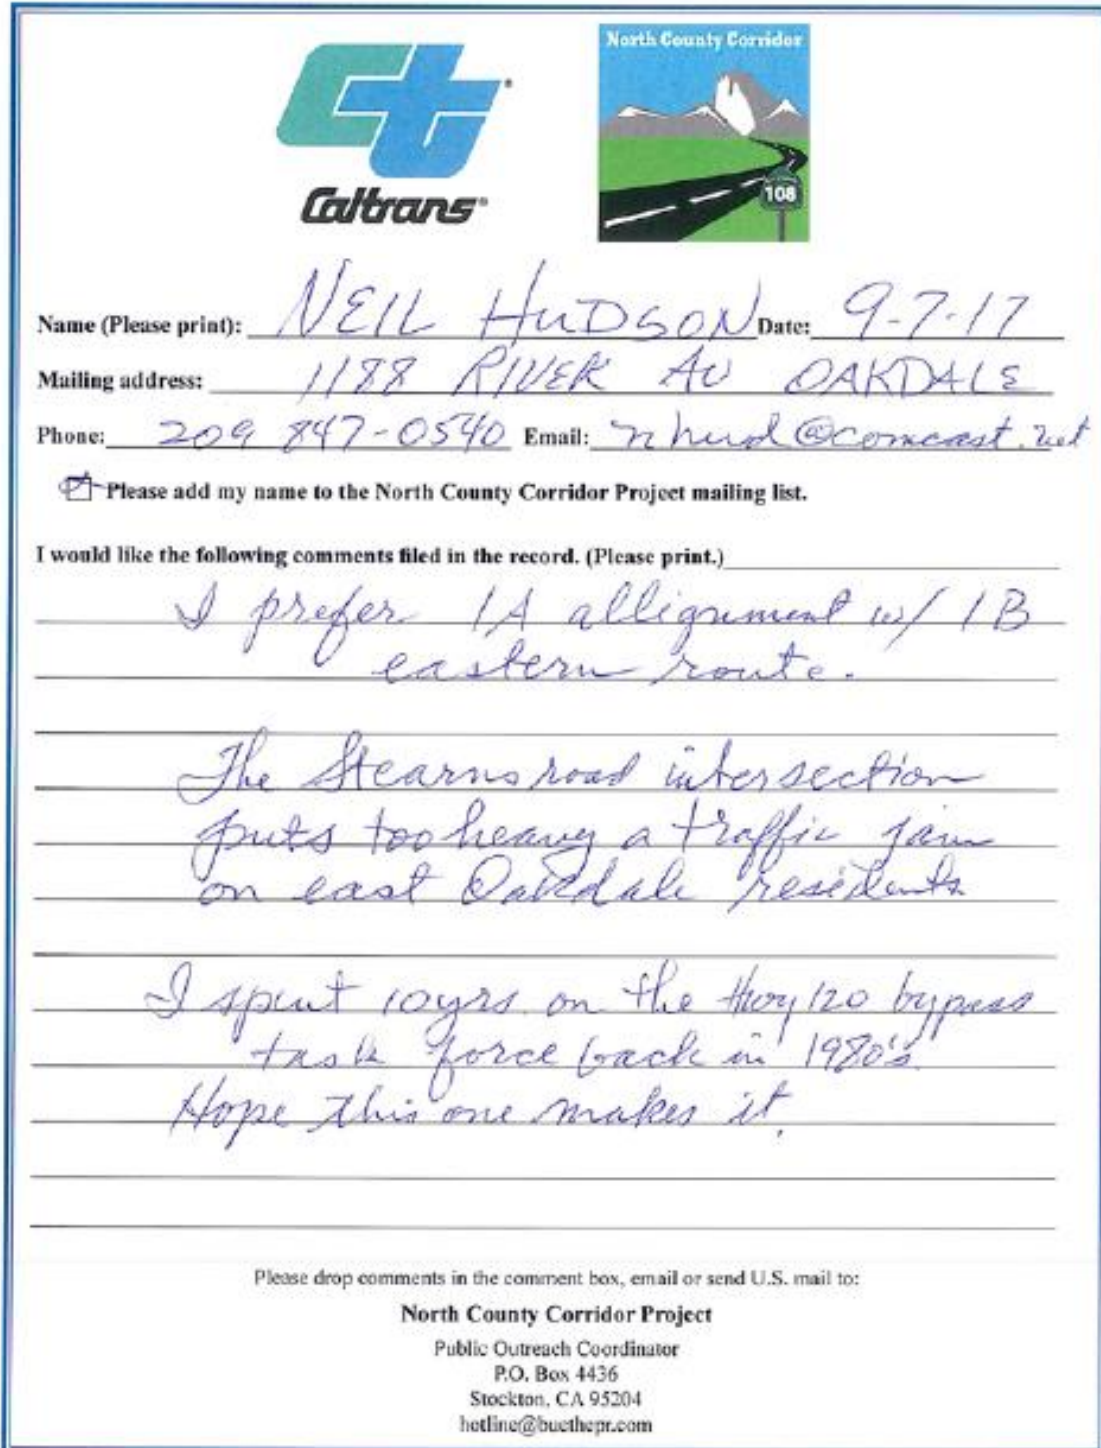 Caltrans®
North County Corridor
108
Name (Please print): NEIL HUDSON Date: 9-7-17
Mailing address: 1188 RIVER AV OAKDALE
Phone: 209 847-0540 Email: nhud@comcast.net
Please add my name to the North County Corridor Project mailing list.
I would like the following comments filed in the record. (Please print.)
I prefer 1A allignment w/ 1B
eastern route.
The Stearns road intersection
puts too heavy a traffic jam
on east Oakdale residents
I spent 10yrs. on the Hwy 120 bypass
task force back in 1980's.
Hope this one makes it.
Please drop comments in the comment box, email or send U.S. mail to:
North County Corridor Project
Public Outreach Coordinator
P.O. Box 4436
Stockton, CA 95204
hotline@buethepr.com